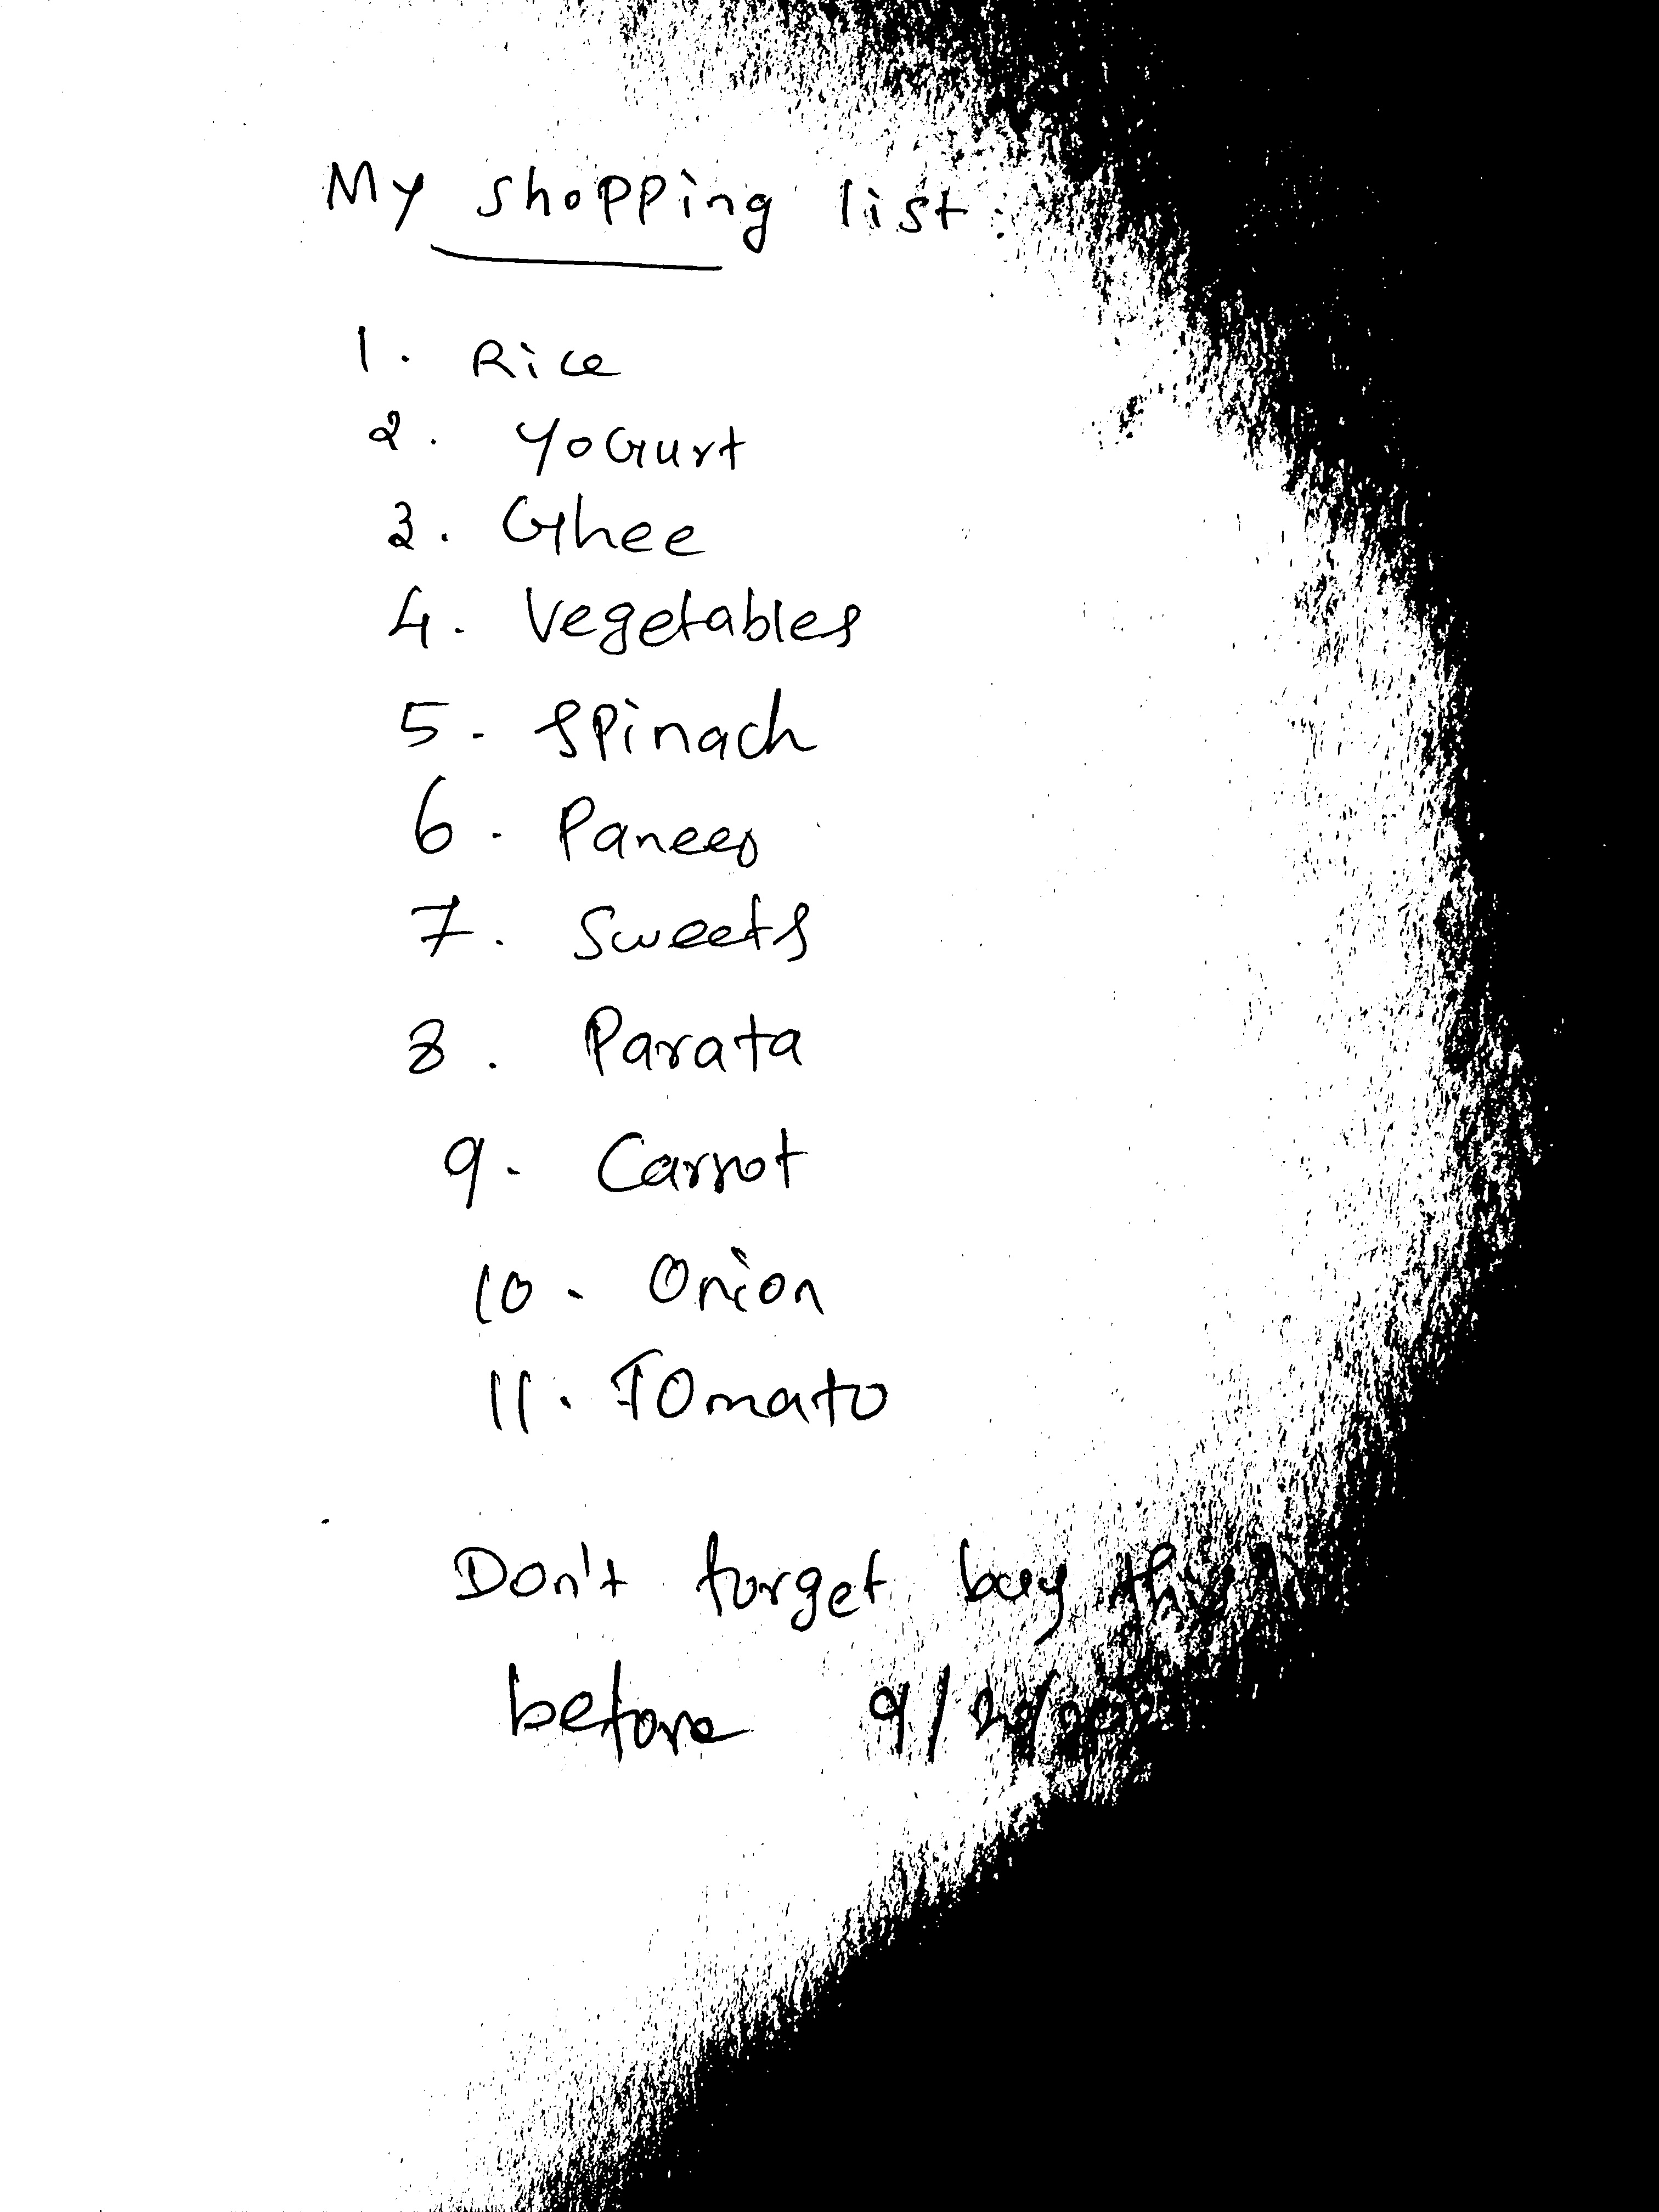 My shopping list:
1. Rice
2. YoGurt
3. Ghee
4. Vegetables
5. Spinach
6. Paneer
7. Sweets
8. Parata
9. Carrot
10. Onion
11. TOmato
Don't forget buy this
before 9/